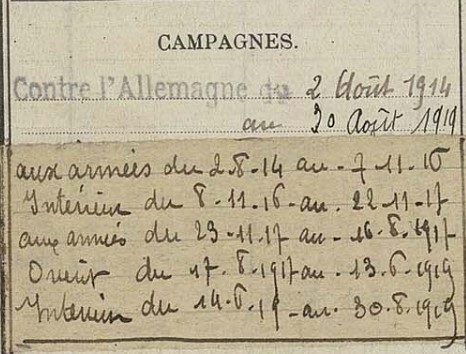 CAMPAGNES.
Contre l'Allemagne du 2 Août 1914
au 30 Août 1919
aux armées du 2-8-14 au - 7-11-16
Intérieur du 8-11-16 - au. 22-11-17
aux armées du 23-11-17 au - 16-8-1917
Orient du 17-8-1917 au - 13-6-1919
Intérieur du 14-6-19 - au - 30-8-1919